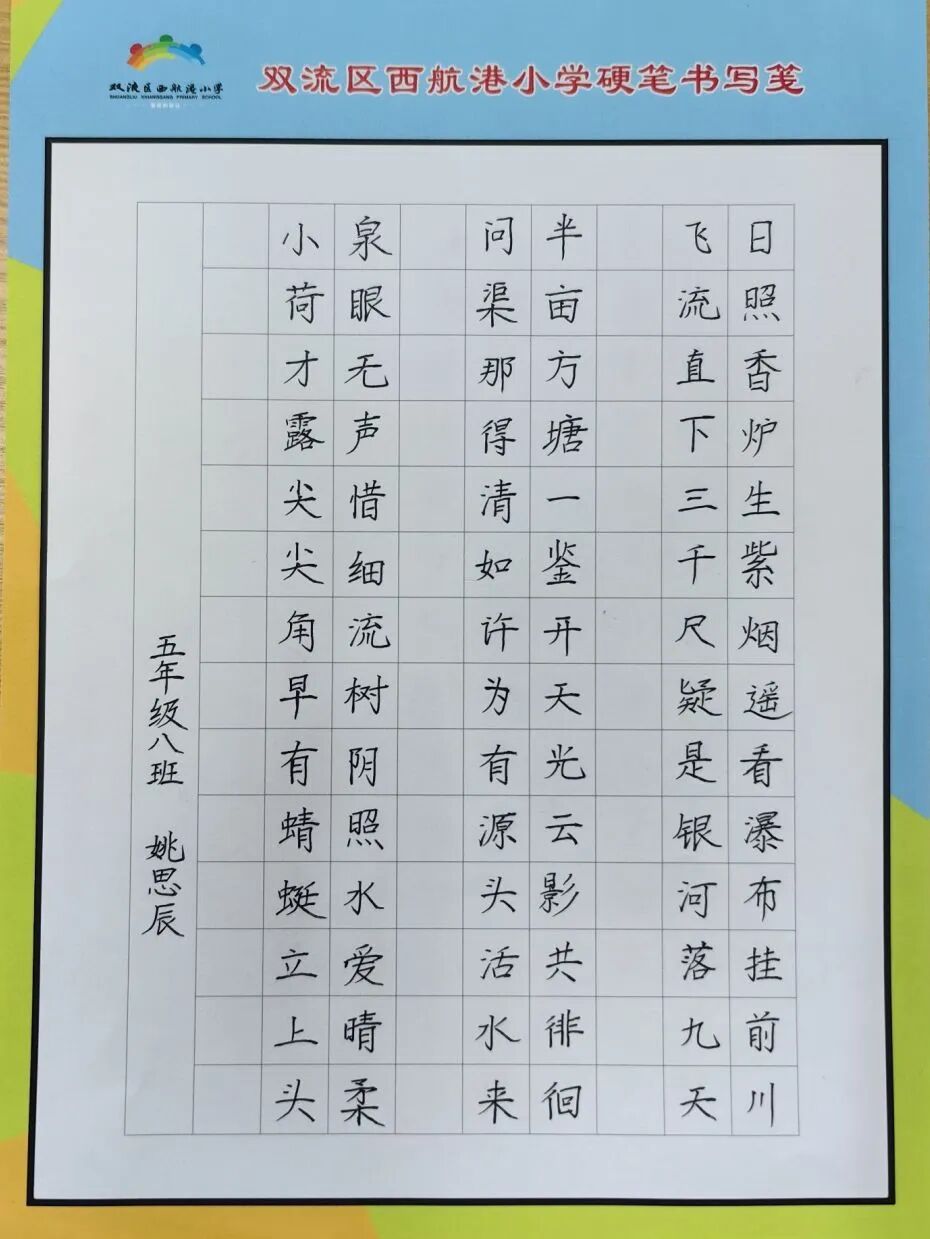 双流区西航港小学
SHUANGLIU XIHANGGANG PRIMARY SCHOOL
双流区西航港小学硬笔书写笺
日照香炉生紫烟遥看瀑布挂前川
飞流直下三千尺疑是银河落九天
半亩方塘一鉴开天光云影共徘徊
问渠那得清如许为有源头活水来
泉眼无声惜细流树阴照水爱晴柔
小荷才露尖尖角早有蜻蜓立上头
五年级八班 姚思辰